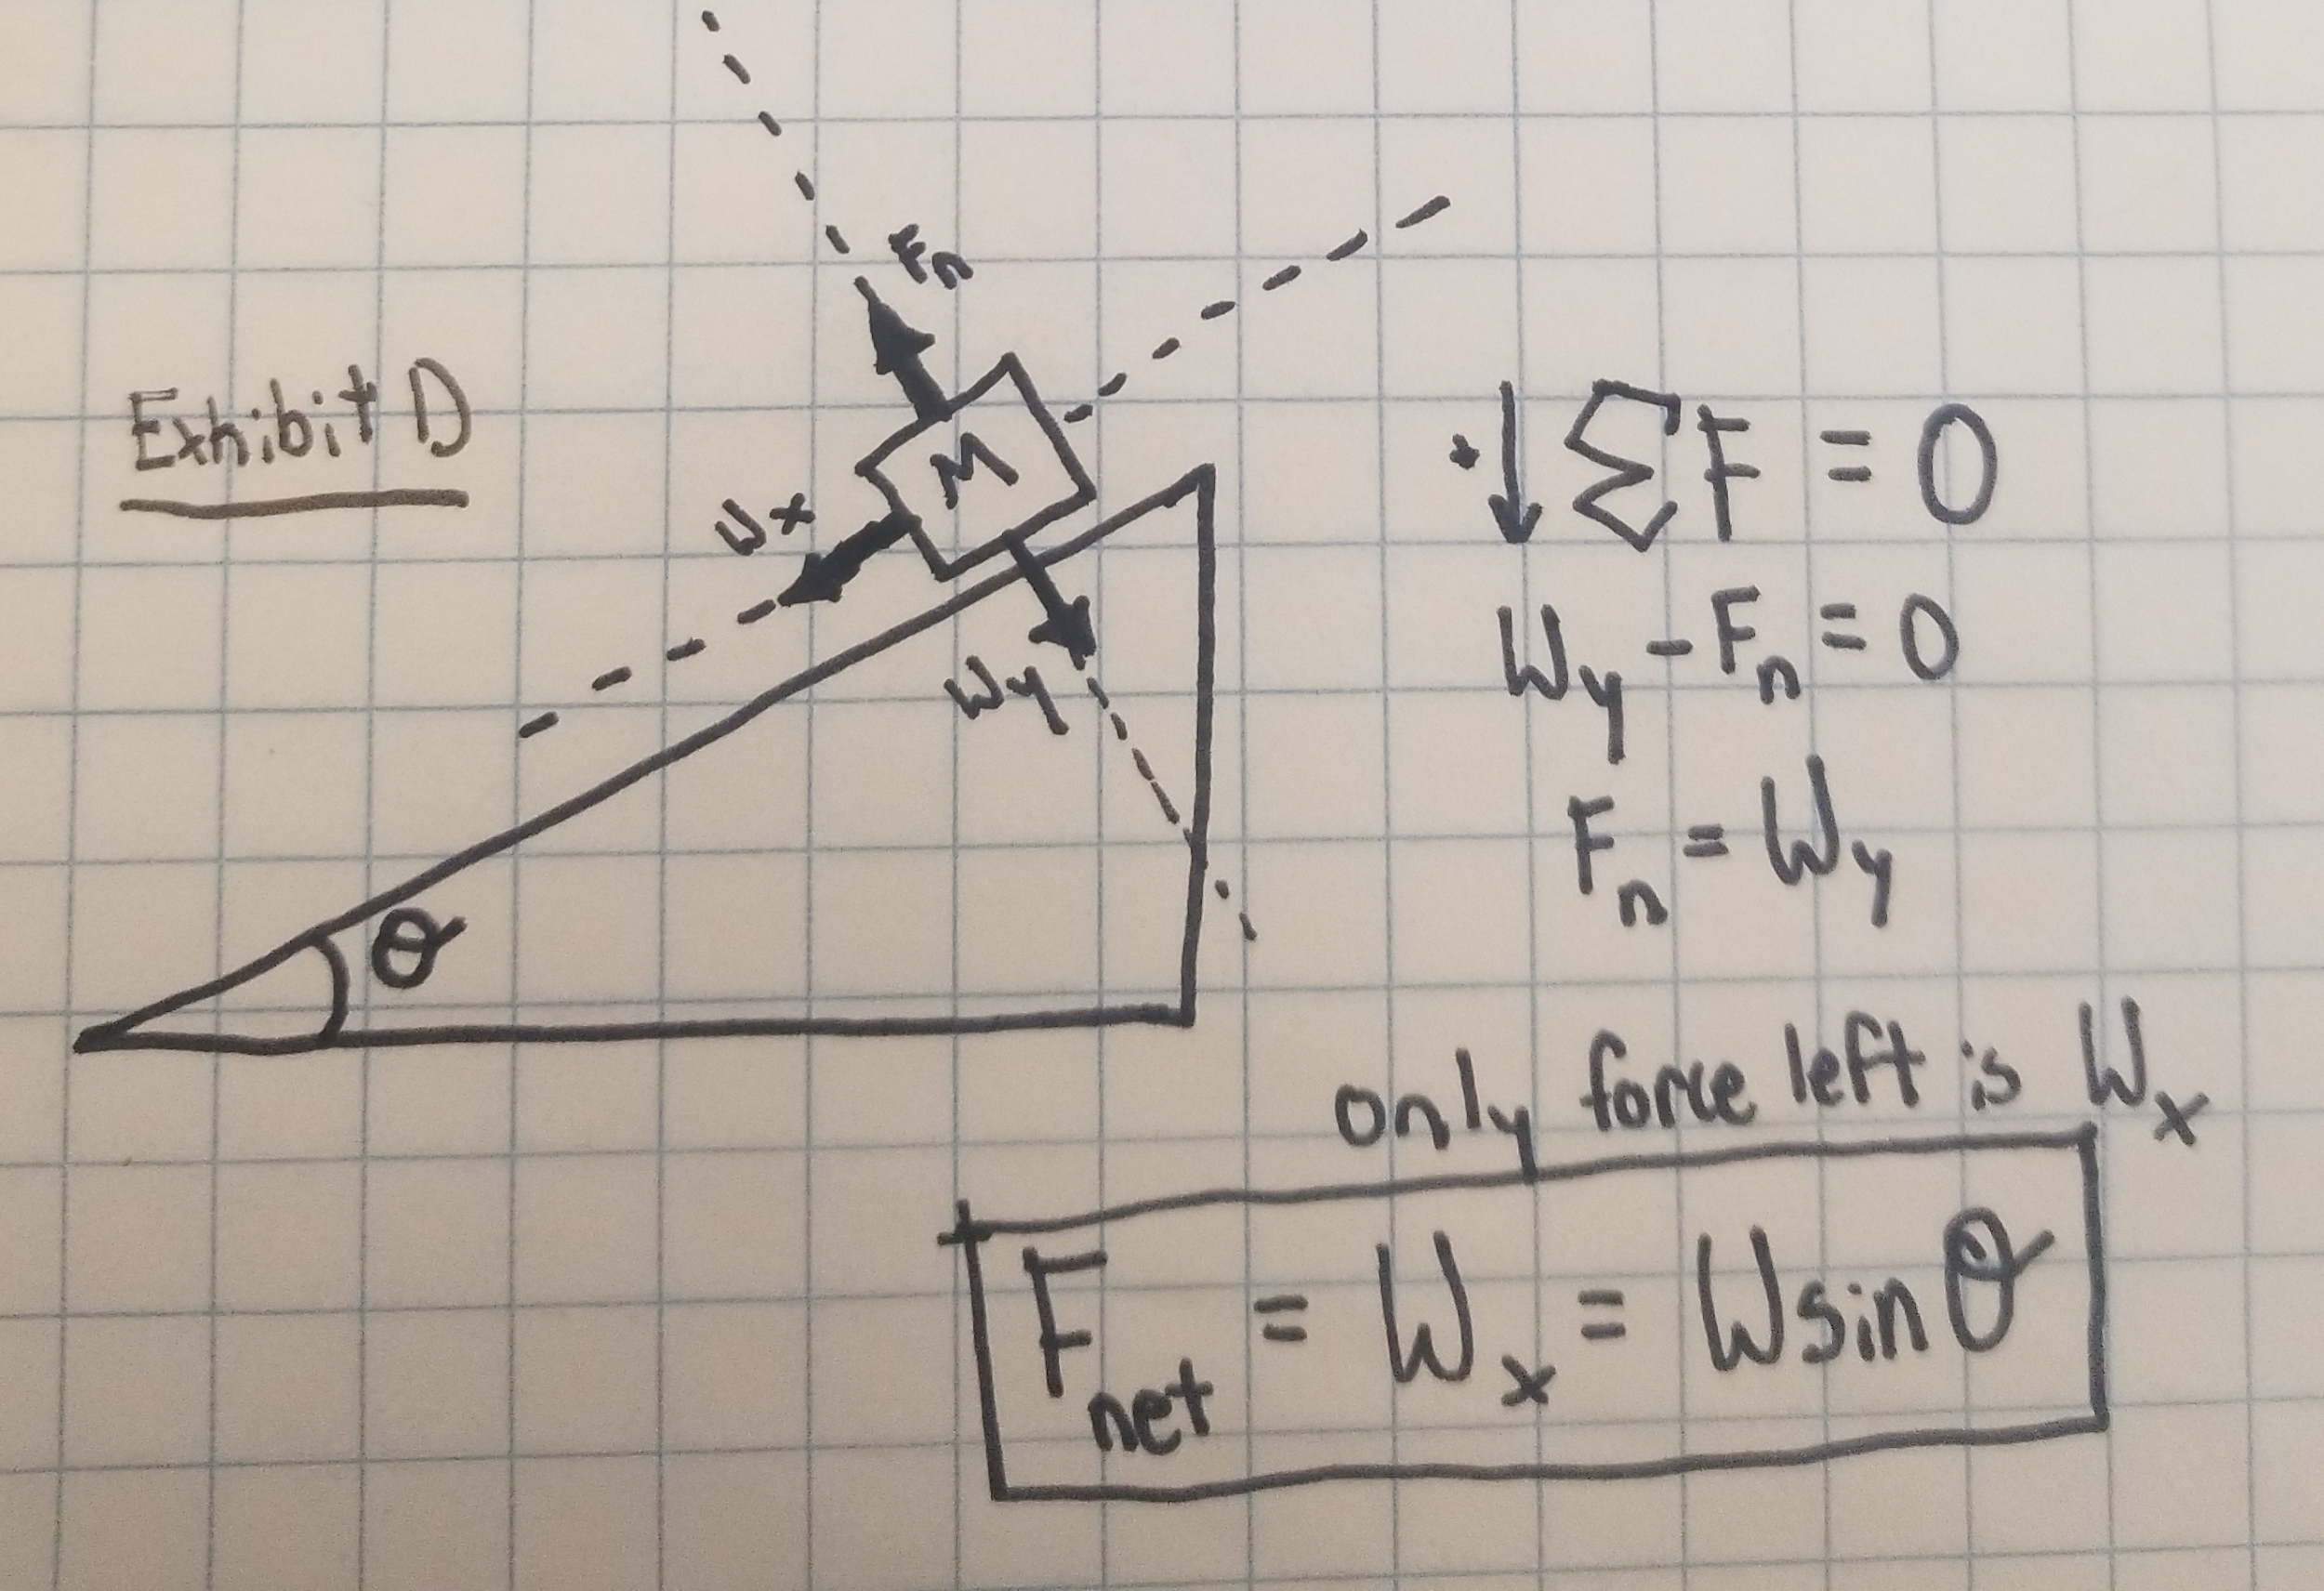 Fn
Exhibit D
M
Wx
Wy
θ
+↓ΣF = 0
Wy - Fn = 0
Fn = Wy
only force left is Wx
Fnet = Wx = Wsinθ